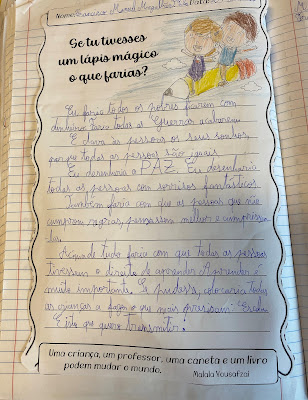 Nome: Francisco Manuel Magalhães
Se tu tivesses
um lápis mágico
o que farias?
Eu faria todos os pobres ficarem com
dinheiro. Faria todas as guerras acabarem.
E dava às pessoas os seus sonhos,
para que todas as pessoas são iguais.
Eu desenharia a PAZ. Eu desenharia
todas as pessoas com sorrisos fantásticos.
Também faria com que as pessoas que não
cumprem regras, pensassem melhor e cumprissem-
-las.
Acima de tudo faria com que todas as pessoas
tivessem o direito de aprender. Aprender é
muito importante. E pudesse, colocaria todas
as crianças a fazer o que mais precisam: Escola.
É isto que quero transmitir!
Uma criança, um professor, uma caneta e um livro
podem mudar o mundo.
Malala Yousafzai